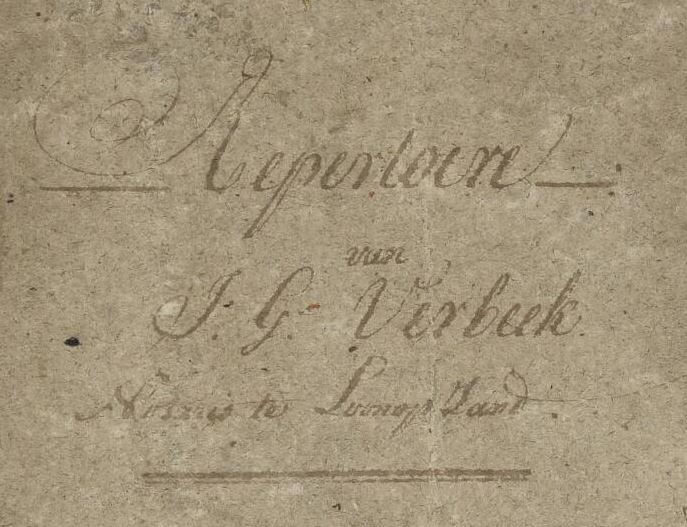 Repertoire
van
J. G. Verbeek
Notaris te Loonop Zand.